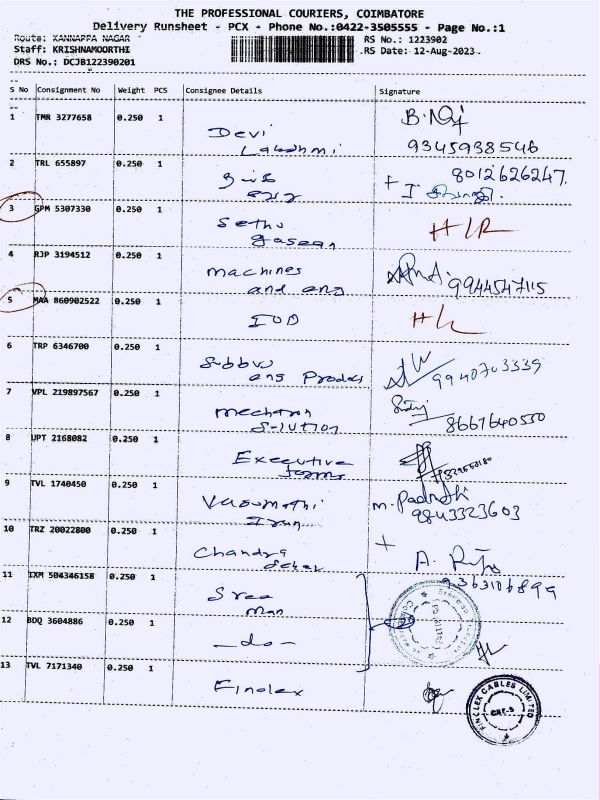 THE PROFESSIONAL COURIERS, COIMBATORE
Delivery Runsheet - PCX - Phone No.:0422-3505555 - Page No.:1
Route: KANNAPPA NAGAR RS No.: 1223902
Staff: KRISHNAMOORTHI RS Date: 12-Aug-2023
DRS No.: DCJB122390201
S No Consignment No Weight PCS Consignee Details Signature
1 TMR 3277658 0.250 1 Devi
Lakshmi 9345938546
2 TRL 655897 0.250 1 8012626247.
3 GPM 5307330 0.250 1 Sethu H/R
4 RJP 3194512 0.250 1 machines
and eng 9944547115
5 MAA 860902522 0.250 1 IOD
6 TRP 6346700 0.250 1 Subbu
eng Products 9940703339
7 VPL 219897567 0.250 1 mechtron
Solution 8667640550
8 UPT 2168082 0.250 1 Executive
9 TVL 1740450 0.250 1 Vasumathi
9843323603
10 TRZ 20022800 0.250 1 Chandra
Sekar
11 IXM 504346158 0.250 1 Sree 9363106899
man
12 BDQ 3604886 0.250 1 -do-
13 TVL 7171340 0.250 1 Finolex
FINOLEX CABLES LIMITED